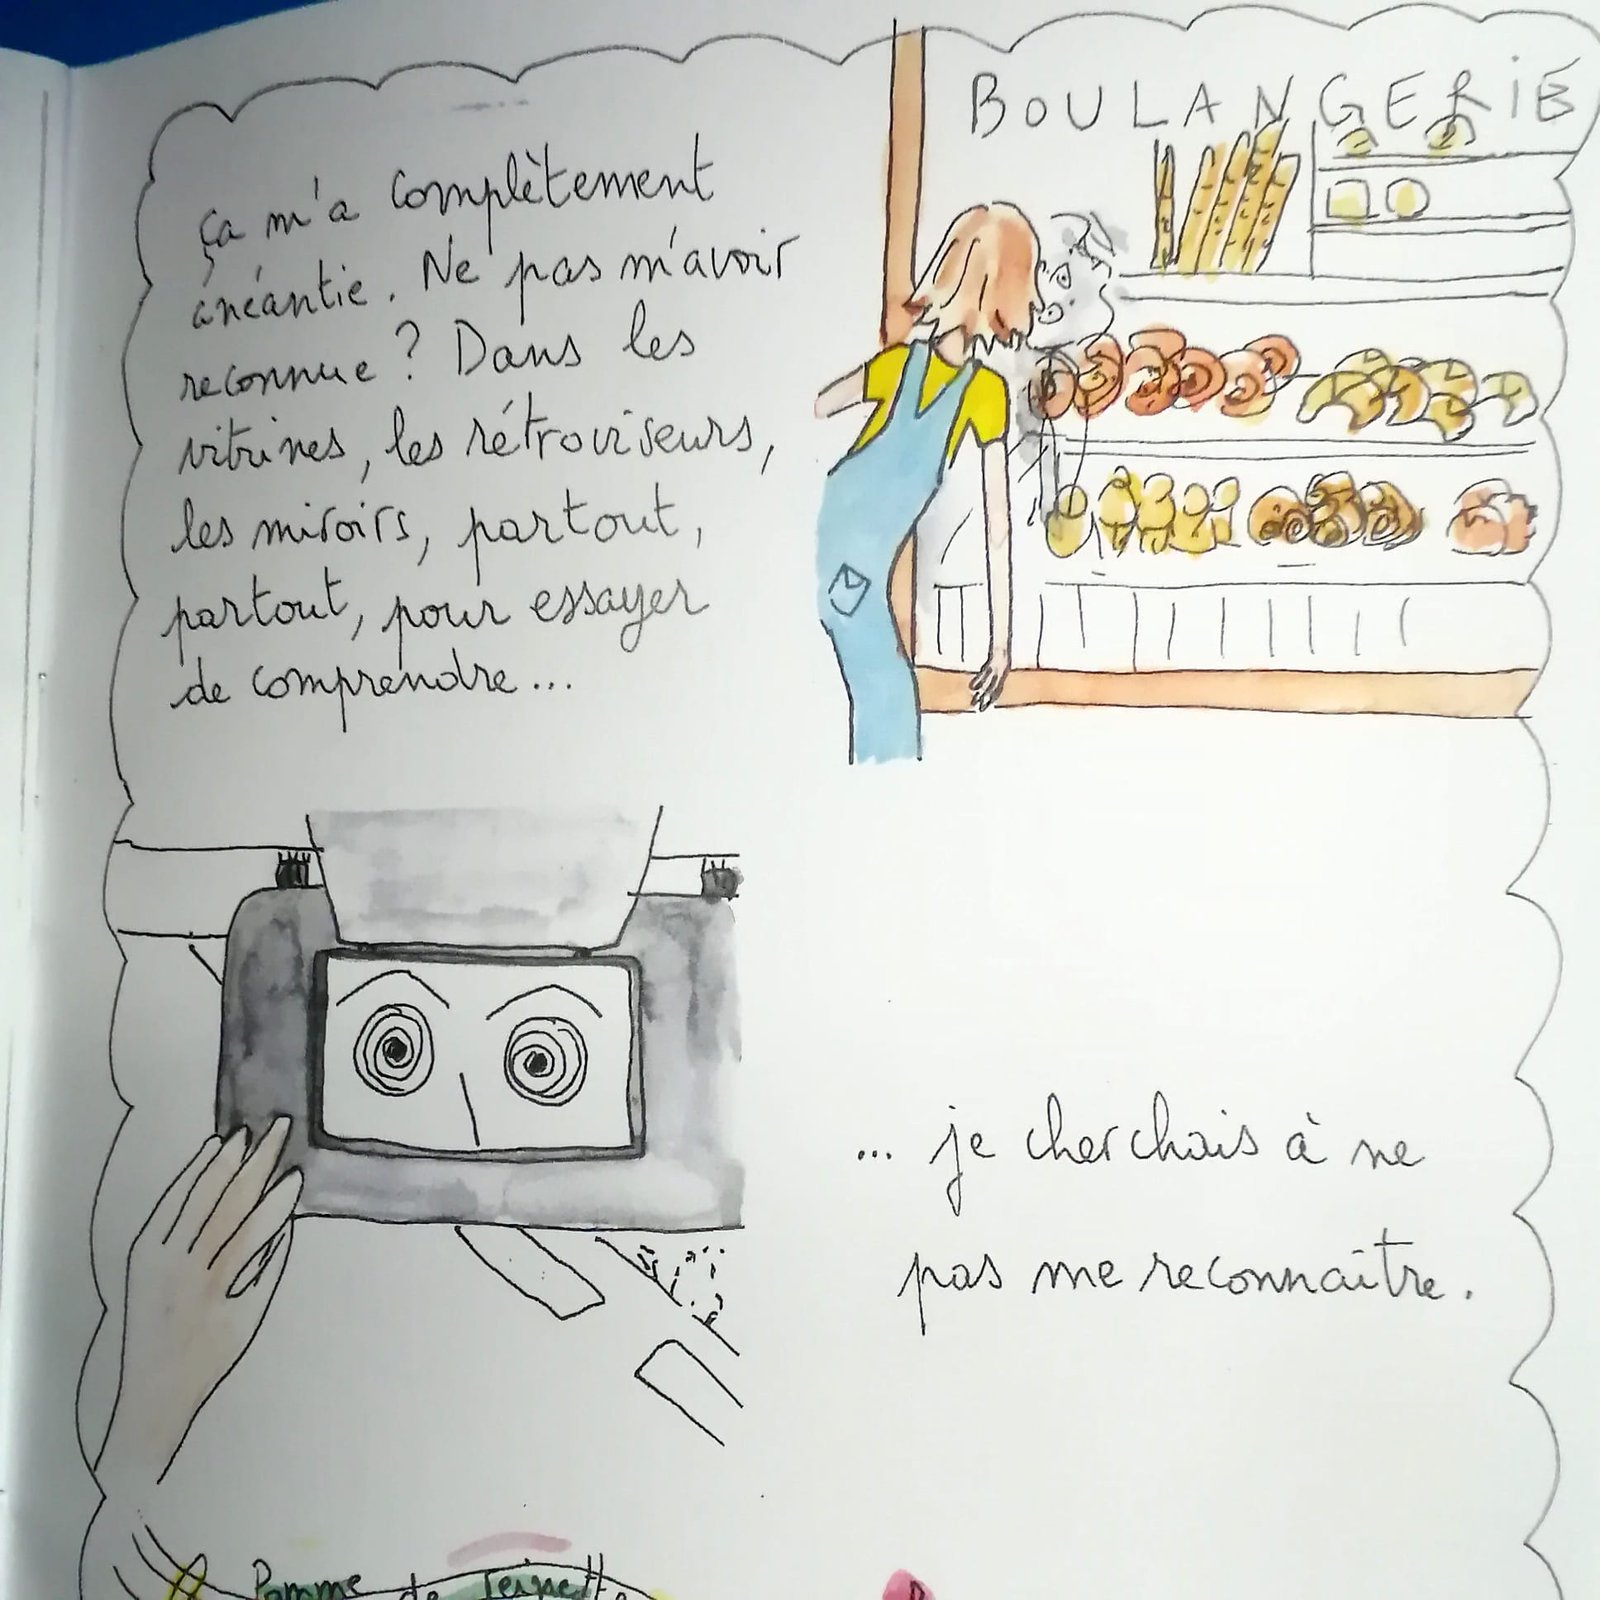 ça m'a complètement
anéantie. Ne pas m'avoir
reconnue ? Dans les
vitrines, les rétroviseurs,
les miroirs, partout,
partout, pour essayer
de comprendre...
BOULANGERIE
... je cherchais à ne
pas me reconnaître.
Pomme de